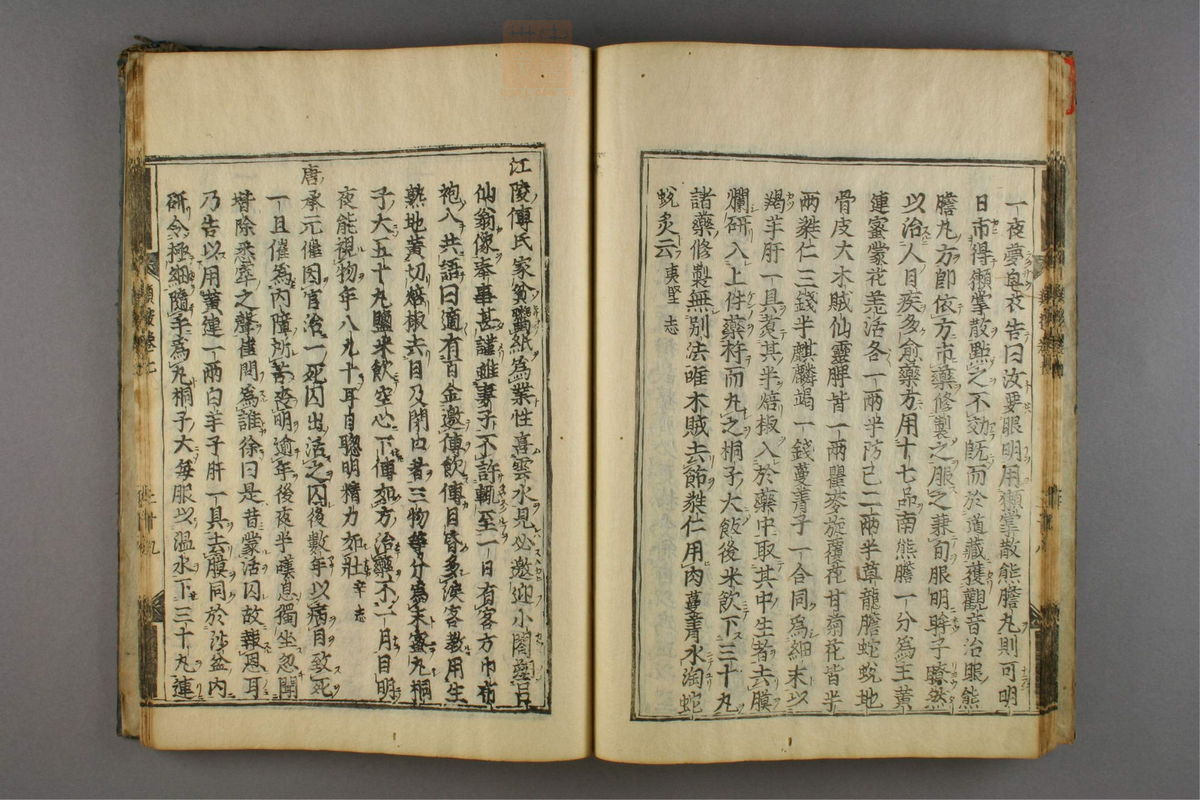 一夜夢皂衣告曰汝要眼明用獺掌散熊膽丸則可明
日市得獺掌散點之不効既而於道藏獲觀音治眼熊
膽丸方卽依方市藥修製之服之兼旬服明眸子瞭然
以治人目疾多愈藥方用十七品南熊膽一分為主黃
連蜜蒙花羌活各一兩半防己二兩半草龍膽蛇蛻地
骨皮大木賊仙靈脾皆一兩瞿麥旋覆花甘菊花皆半
兩蕤仁三錢半麒麟竭一錢蔓菁子一合同為細末以
羯羊肝一具煮其半焙椒入於藥中取其中生者去膜
爛研入上件藥杵而丸之桐子大飯後米飲下三十丸
諸藥修製無別法唯木賊去節蕤仁用肉蔓菁水淘蛇
蛻炙云 夷堅志
江陵傅氏家貧鬻紙為業性喜雲水見必邀迎小閣塑呂
仙翁像奉事甚謹雖妻子不許輒至一日有客方巾布
袍入共語曰適有百金邀傅飲傅目昏多淚客教用生
熟地黃切焙椒去目及閉口者三物等分為末蜜丸桐
子大五十丸鹽米飲空心下傅如方治藥不一月目明
夜能視物年八九十耳目聰明精力如壯 辛志
唐承元催因官治一死囚出活之囚後數年以病目致死
一旦催為內障所苦喪明逾年後夜半嘆息獨坐忽聞
堦除悉窣之聲催問為誰徐曰是昔蒙活囚故報恩耳
乃告以用黃連一兩白羊子肝一具去膜同於沙盆內
研令極細隨手為丸桐子大每服以溫水下三十丸連